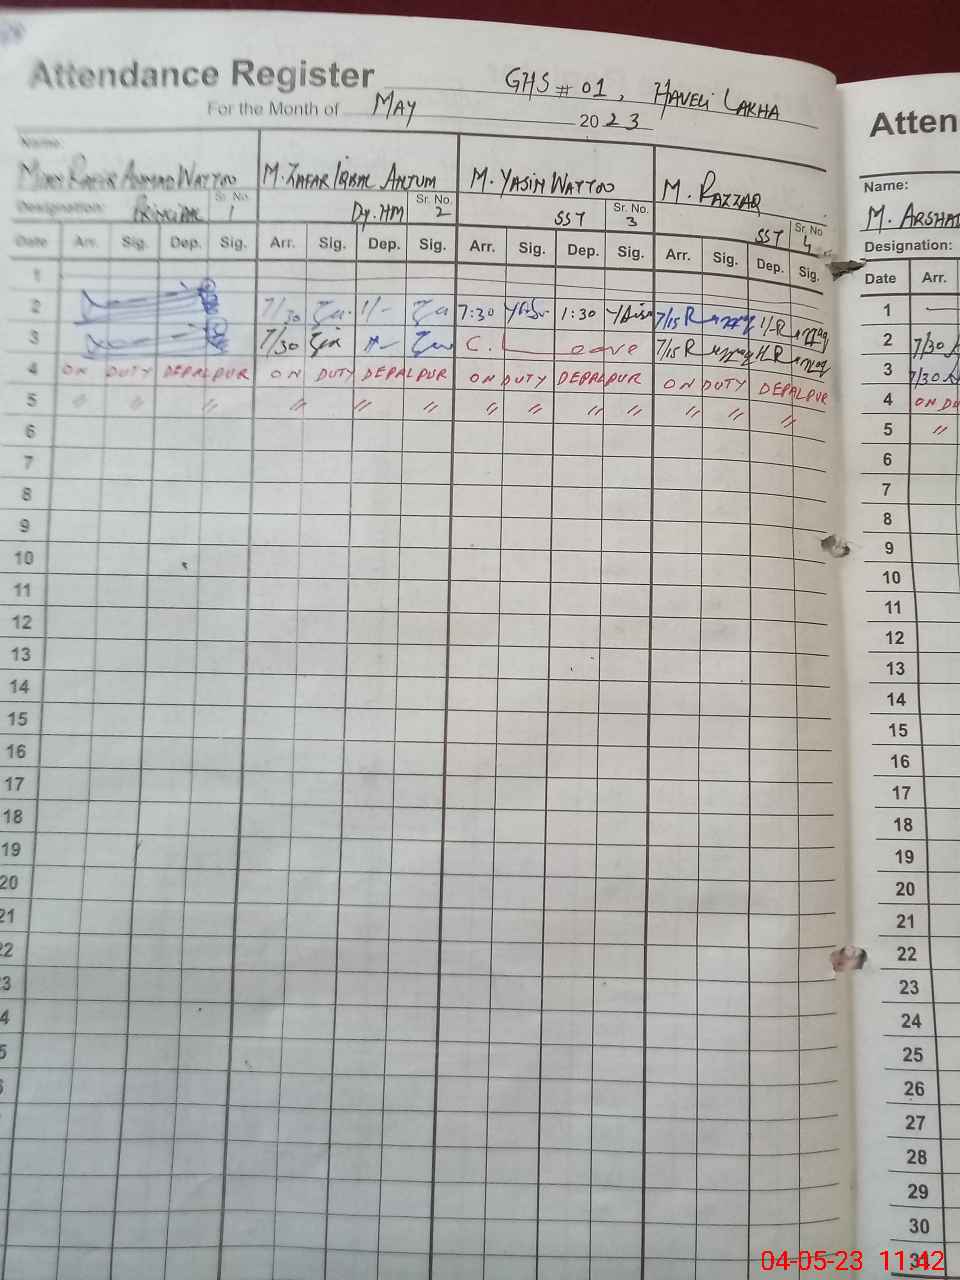 Attendance Register GHS # 01, HAVELI LAKHA
For the Month of MAY 2023
Name:
MIAN RAFIR AHMAD WATTOO M. ZAFAR IQBAL ANJUM M. YASIN WATTOO M. RAZZAQ
Designation: PRINCIPAL Sr. No. 1 Dy. HM Sr. No. 2 SST Sr. No. 3 SST Sr. No 4
Date Arr. Sig. Dep. Sig. Arr. Sig. Dep. Sig. Arr. Sig. Dep. Sig. Arr. Sig. Dep. Sig.
1
2 7/30 1/- 7:30 1:30 7/15 Razzaq 1/- Razzaq
3 7/30 C. Leave 7/15 Razzaq Razzaq
4 ON DUTY DEPALPUR ON DUTY DEPALPUR ON DUTY DEPALPUR ON DUTY DEPALPUR
5 〃 〃 〃 〃 〃 〃 〃 〃 〃 〃 〃 〃 〃
6
7
8
9
10
11
12
13
14
15
16
17
18
19
20
21
22
3
4
5
Atten
Name:
M. ARSHAD
Designation:
Date Arr.
1
2 7/30
3 7/30
4 ON DU
5 〃
6
7
8
9
10
11
12
13
14
15
16
17
18
19
20
21
22
23
24
25
26
27
28
29
30
31
04-05-23 11:42